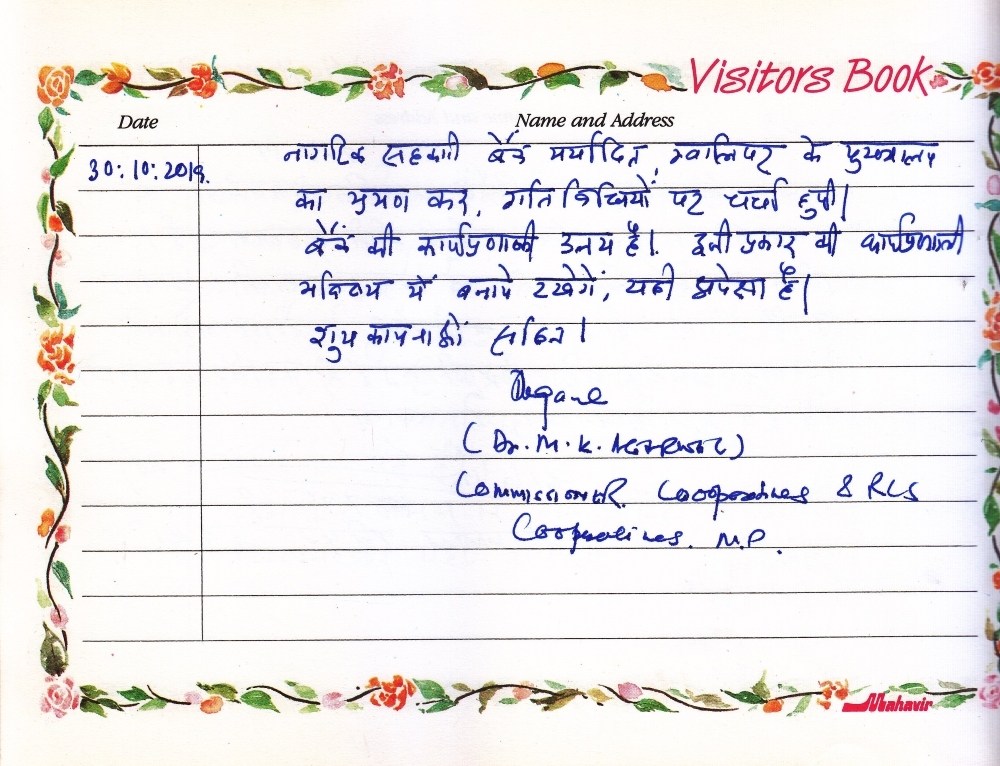 Visitors Book
Date Name and Address
30:10:2019. नागरिक सहकारी बैंक मर्यादित, ग्वालियर के मुख्यालय
का भ्रमण कर, गतिविधियों पर चर्चा हुयी।
बैंक की कार्यप्रणाली उत्तम है। इसी प्रकार की कार्यप्रणाली
भविष्य में बनाये रखेगें, यही अपेक्षा है।
शुभकामनाओं सहित।
(Dr. M. K. Agarwal)
Commissioner Cooperatives & RCS
Cooperatives. M.P.
Mahavir